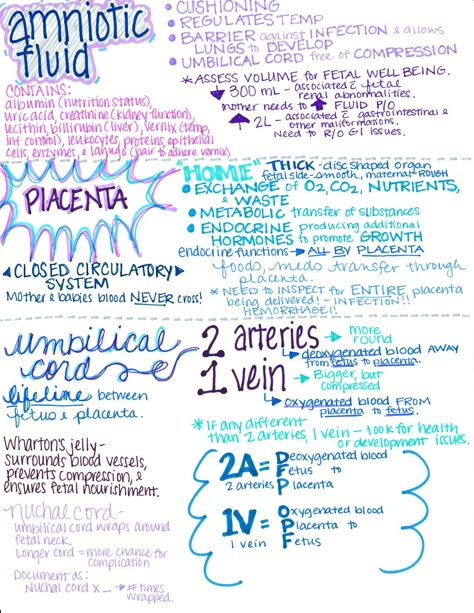 amniotic
fluid
CONTAINS:
albumin (nutrition status),
uric acid, creatinine (kidney function),
lecithin, billirubin (liver), vernix (temp,
inf control), leukocytes, proteins, epithelial
cells, enzymes, & lanugo (hair to adhere vernix)
• CUSHIONING
• REGULATES TEMP
• BARRIER against INFECTION & allows
LUNGS to DEVELOP
• UMBILICAL CORD free of COMPRESSION
* ASSESS VOLUME for FETAL WELL BEING.
↓ 300 mL - associated c̄ fetal
renal abnormalities.
mother needs to ↑ FLUID P/O
↑ 2L - associated c̄ gastrointestinal &
other malformations.
Need to R/O GI ISSUES.
PLACENTA
◄ CLOSED CIRCULATORY ►
SYSTEM
Mother & babies blood NEVER cross!
"HOME" THICK - disc shaped organ
fetal side-smooth, maternal ROUGH
• EXCHANGE OF O2, CO2, NUTRIENTS,
& WASTE
• METABOLIC transfer of substances
• ENDOCRINE producing additional
HORMONES to promote GROWTH
endocrine functions → ALL BY PLACENTA
foods, meds transfer through
placenta.
* NEED to INSPECT for ENTIRE placenta
being delivered! - INFECTION!!
HEMORRHAGE!!
umbilical
cord
lifeline between
fetus & placenta.
Wharton's jelly -
surrounds blood vessels,
prevents compression, &
ensures fetal nourishment.
Nuchal cord -
umbilical cord wraps around
fetal neck.
Longer cord = more chance for
complication
Document as:
Nuchal cord x _ → # times
wrapped.
2 arteries → more
round
↳ deoxygenated blood AWAY
from fetus to placenta.
1 vein → Bigger, but
compressed
↳ oxygenated blood FROM
placenta to fetus.
* If any different
than 2 arteries, 1 vein - look for health
or development issues.
2A = Deoxygenated blood
2 arteries Fetus to
Placenta
1V = Oxygenated blood
1 vein Placenta to
Fetus